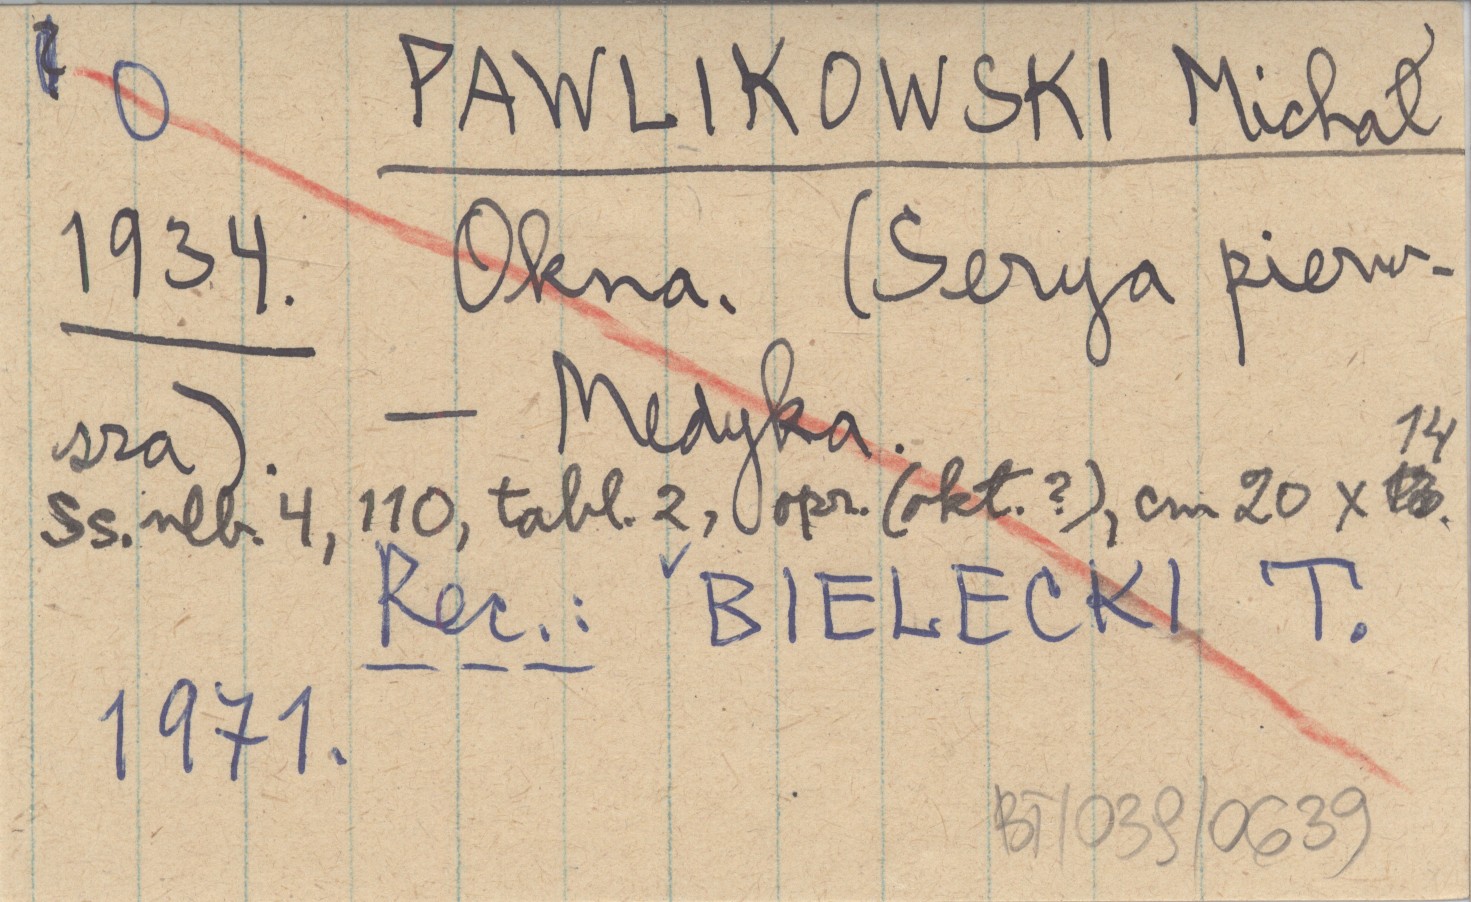 O PAWLIKOWSKI Michał
1934. Okna. (Serya pierw-
sza). — Medyka.
Ss. nlb. 4, 110, tabl. 2, opr. (okt.?), cm 20 x 14.
Rec.: BIELECKI T.
1971.
BT/039/0639